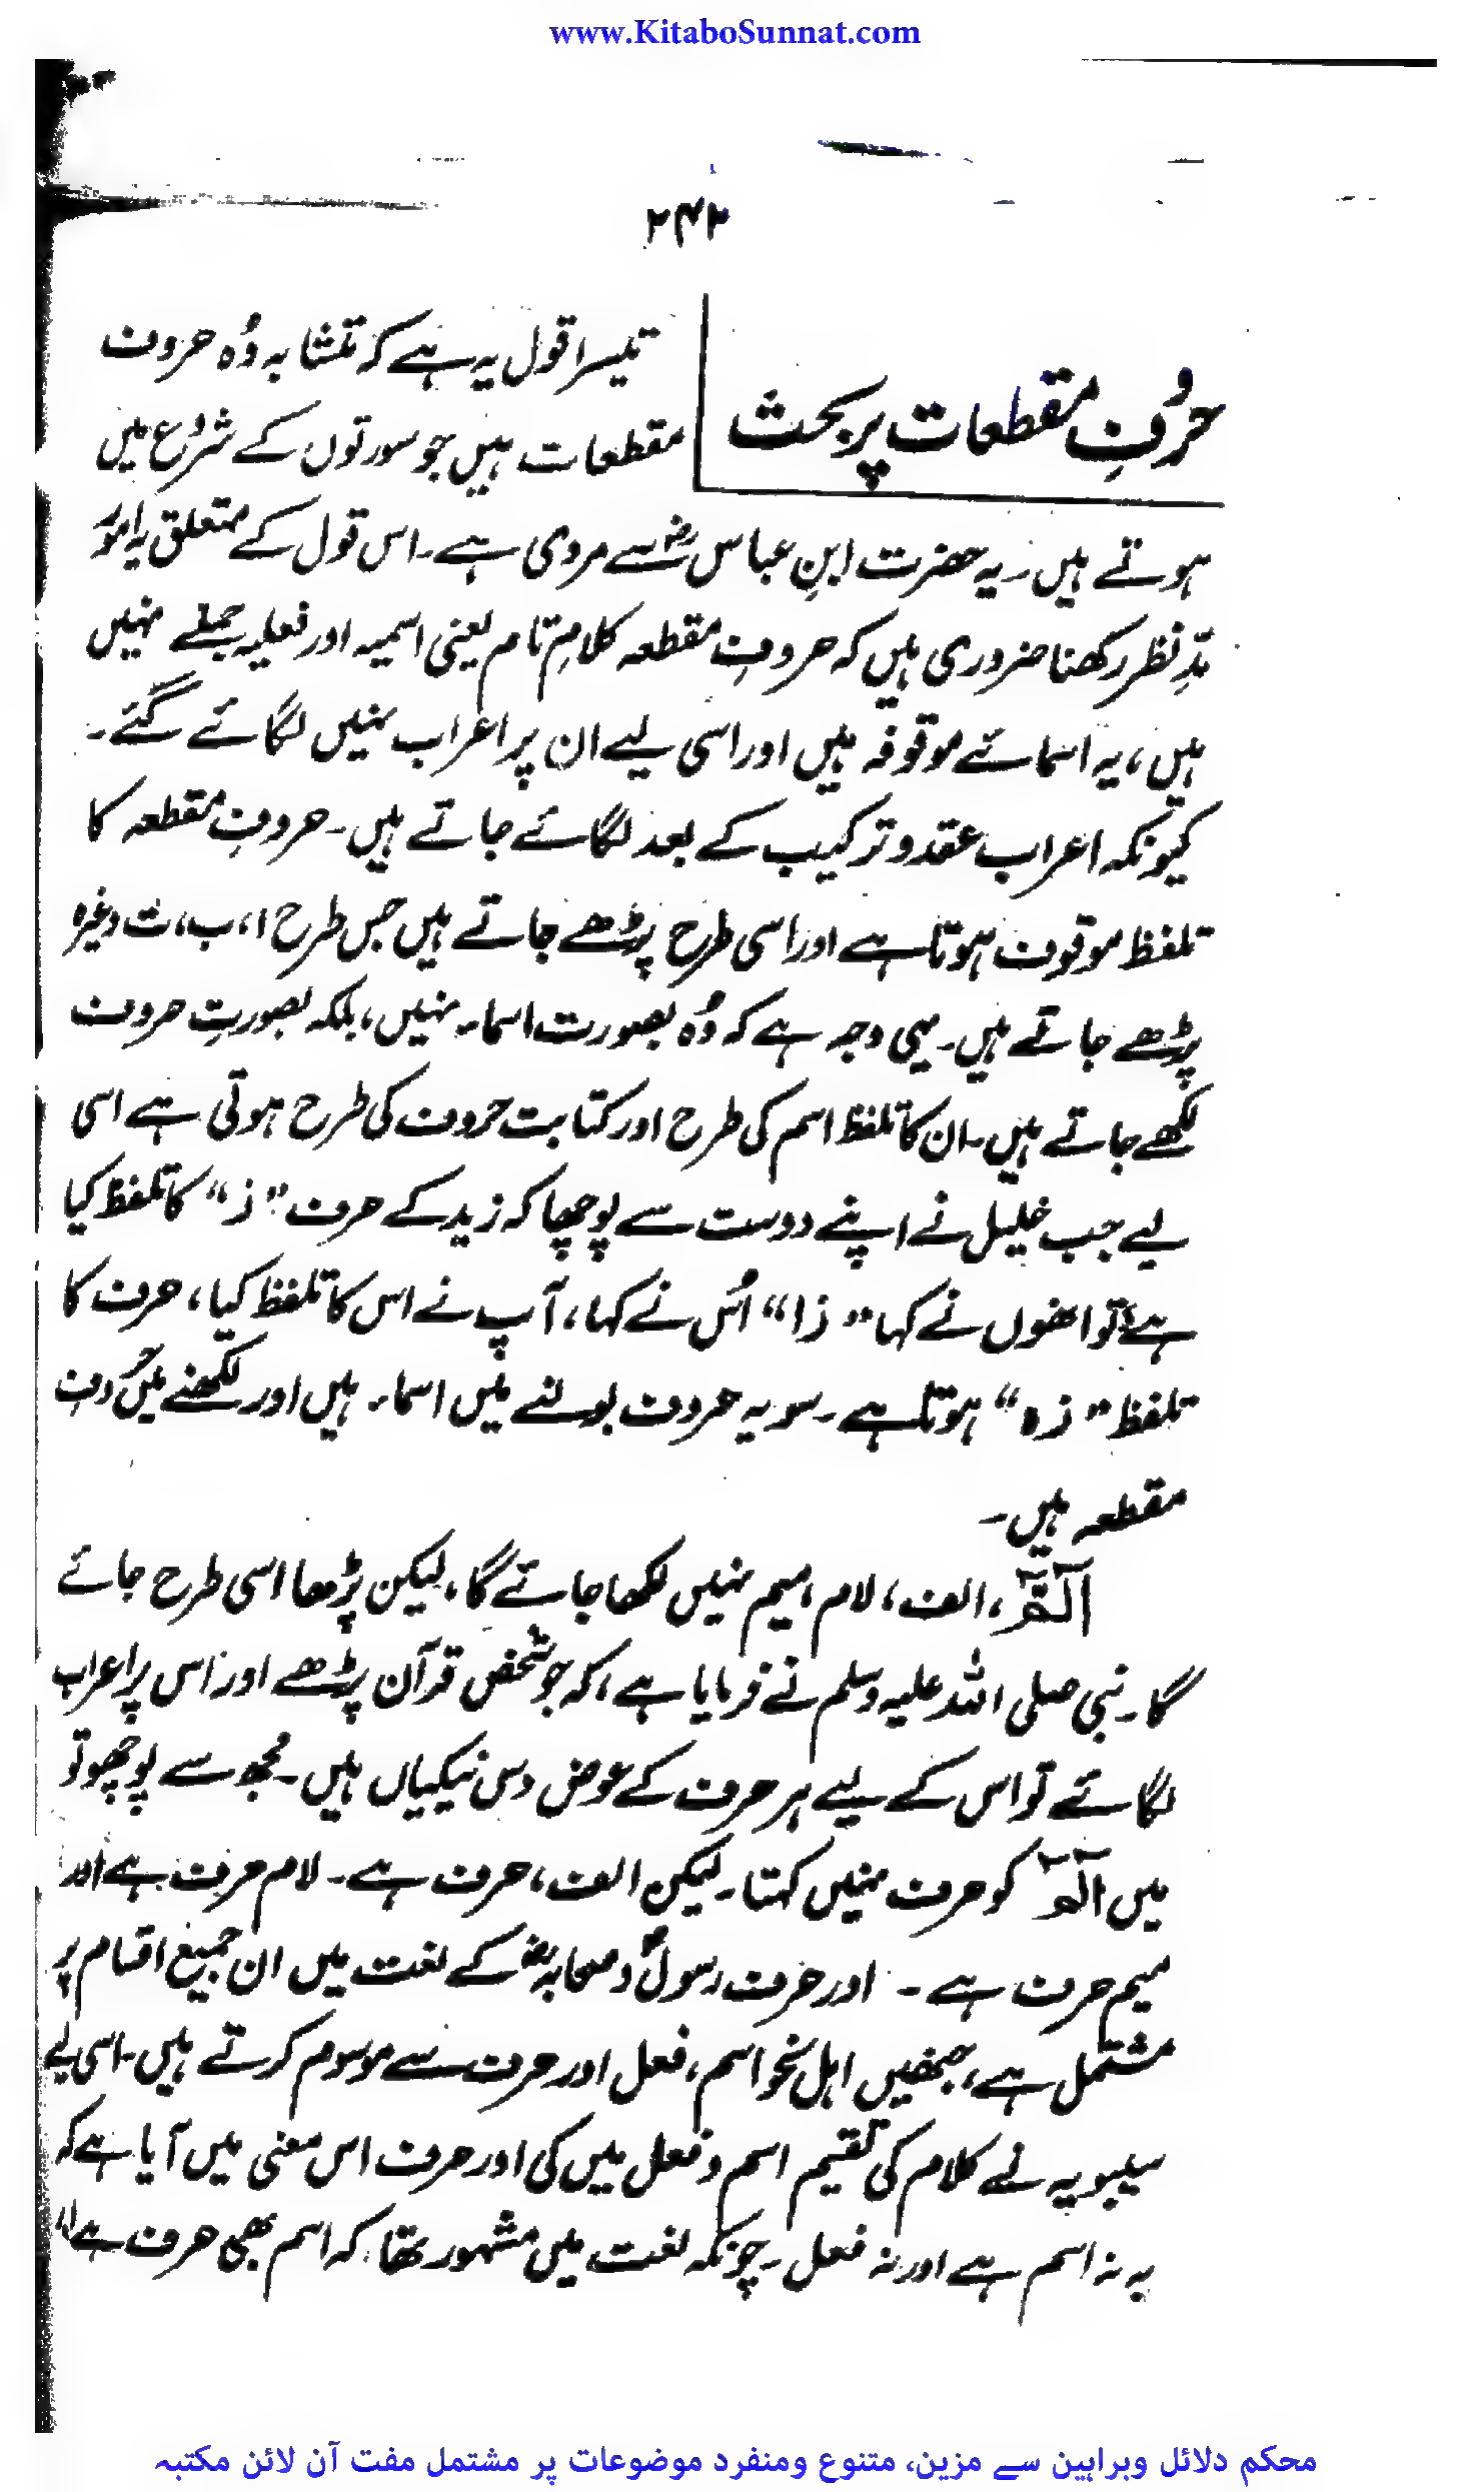 www.KitaboSunnat.com
۲۴۲
حروفِ مقطعات پر بحث
تیسرا قول یہ ہے کہ تمشابہ وُہ حروف
مقطعات ہیں جو سورتوں کے شروع میں
ہوتے ہیں۔ یہ حضرت ابنِ عباسؓ سے مروی ہے۔ اس قول کے متعلق یہ امور
مدِّ نظر رکھنا ضروری ہیں کہ حروفِ مقطعہ کلامِ تام یعنی اسمیہ اور فعلیہ جملے نہیں
ہیں، یہ اسمائے موقوفہ ہیں اور اسی لیے ان پر اعراب نہیں لگائے گئے۔
کیونکہ اعراب عقد و ترکیب کے بعد لگائے جاتے ہیں۔ حروفِ مقطعہ کا
تلفظ موقوف ہوتا ہے اور اسی طرح پڑھے جاتے ہیں جس طرح ا، ب، ت وغیرہ
پڑھے جاتے ہیں۔ یہی وجہ ہے کہ وُہ بصورت اسماء نہیں، بلکہ بصورتِ حروف
لکھے جاتے ہیں۔ ان کا تلفظ اسم کی طرح اور کتابت حروف کی طرح ہوتی ہے اسی
لیے جب خلیل نے اپنے دوست سے پوچھا کہ زید کے حرف "ز" کا تلفظ کیا
ہے؟ تو انھوں نے کہا "زا" اُس نے کہا، آپ نے اس کا تلفظ کیا، حرف کا
تلفظ "زہ" ہوتا ہے۔ سو یہ حروف بولنے میں اسماء ہیں اور لکھنے میں حروف
مقطعہ ہیں۔
آلٓمّٓ، الف، لام، میم نہیں لکھا جائے گا، لیکن پڑھا اسی طرح جائے
گا۔ نبی صلی اللہ علیہ وسلم نے فرمایا ہے، کہ جو شخص قرآن پڑھے اور اس پر اعراب
لگائے تو اس کے لیے ہر حرف کے عوض دس نیکیاں ہیں۔ مجھ سے پوچھو تو
میں آلٓمٓ کو حرف نہیں کہتا۔ لیکن الف، حرف ہے۔ لام حرف ہے اور
میم حرف ہے۔ اور حرف رسولؐ و صحابہؓ کے لغت میں ان جمیع اقسام پر
مشتمل ہے، جنھیں اہل نحو اسم، فعل اور حرف سے موسوم کرتے ہیں۔ اسی لیے
سیبویہ نے کلام کی تقسیم اسم و فعل میں کی اور حرف اس معنی میں آیا ہے کہ
یہ نہ اسم ہے اور نہ فعل۔ چونکہ لغت میں مشہور تھا، کہ اسم بھی حرف ہے"
محکم دلائل وبراہین سے مزین، متنوع ومنفرد موضوعات پر مشتمل مفت آن لائن مکتبہ